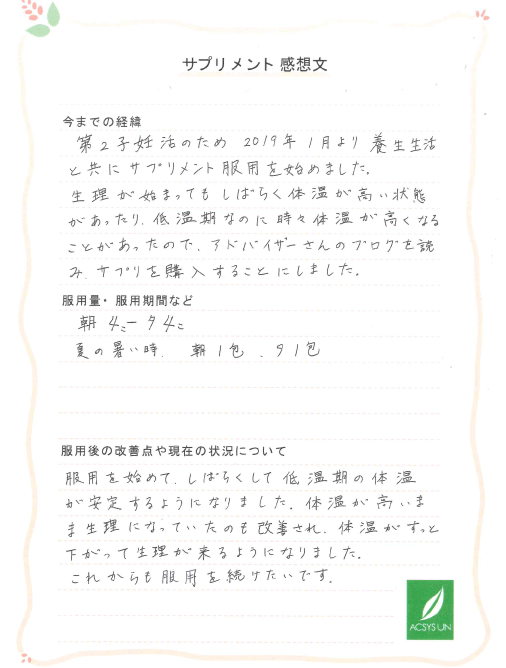 サプリメント 感想文
今までの経緯
第2子妊活のため 2019年1月より養生生活
と共にサプリメント服用を始めました。
生理が始まってもしばらく体温が高い状態
があったり、低温期なのに時々体温が高くなる
ことがあったので、アドバイザーさんのブログを読
み、サプリを購入することにしました。
服用量・服用期間など
朝4コー夕4コ
夏の暑い時、朝1包、夕1包
服用後の改善点や現在の状況について
服用を始めて、しばらくして低温期の体温
が安定するようになりました。体温が高いま
ま生理になっていたのも改善され、体温がすっと
下がって生理が来るようになりました。
これからも服用を続けたいです。
ACSYSUN